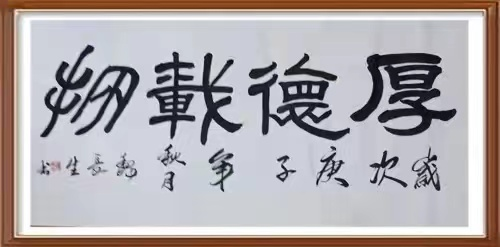 厚德載物
歲次庚子年秋月
長生书